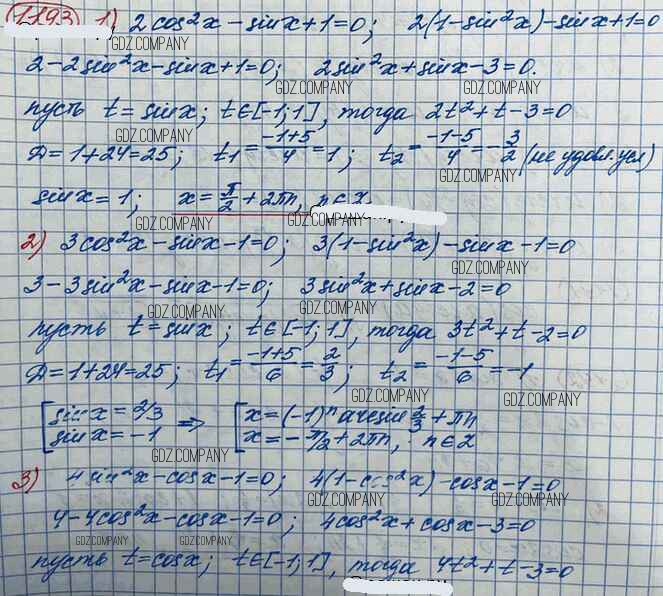 1193 1) 2cos²x - sinx + 1 = 0; 2(1 - sin²x) - sinx + 1 = 0
GDZ.COMPANY
2 - 2sin²x - sinx + 1 = 0; 2sin²x + sinx - 3 = 0.
GDZ.COMPANY GDZ.COMPANY
пусть t = sinx; t∈[-1;1], тогда 2t² + t - 3 = 0
GDZ.COMPANY GDZ.COMPANY
Д = 1 + 24 = 25; t₁ = (-1+5)/4 = 1; t₂ = (-1-5)/4 = -3/2 (не удовл. усл)
GDZ.COMPANY
sinx = 1; x = π/2 + 2πn, n∈Z
GDZ.COMPANY GDZ.COMPANY
2) 3cos²x - sinx - 1 = 0; 3(1 - sin²x) - sinx - 1 = 0
GDZ.COMPANY
3 - 3sin²x - sinx - 1 = 0; 3sin²x + sinx - 2 = 0
GDZ.COMPANY
пусть t = sinx; t∈[-1;1], тогда 3t² + t - 2 = 0
GDZ.COMPANY GDZ.COMPANY
Д = 1 + 24 = 25; t₁ = (-1+5)/6 = 2/3; t₂ = (-1-5)/6 = -1
GDZ.COMPANY GDZ.COMPANY
[sinx = 2/3 => [x = (-1)ⁿ arcsin 2/3 + πn
[sinx = -1 [x = -π/2 + 2πn, n∈Z
GDZ.COMPANY
3) 4sin²x - cosx - 1 = 0; 4(1 - cos²x) - cosx - 1 = 0
GDZ.COMPANY GDZ.COMPANY
4 - 4cos²x - cosx - 1 = 0; 4cos²x + cosx - 3 = 0
GDZ.COMPANY GDZ.COMPANY
пусть t = cosx; t∈[-1;1], тогда 4t² + t - 3 = 0